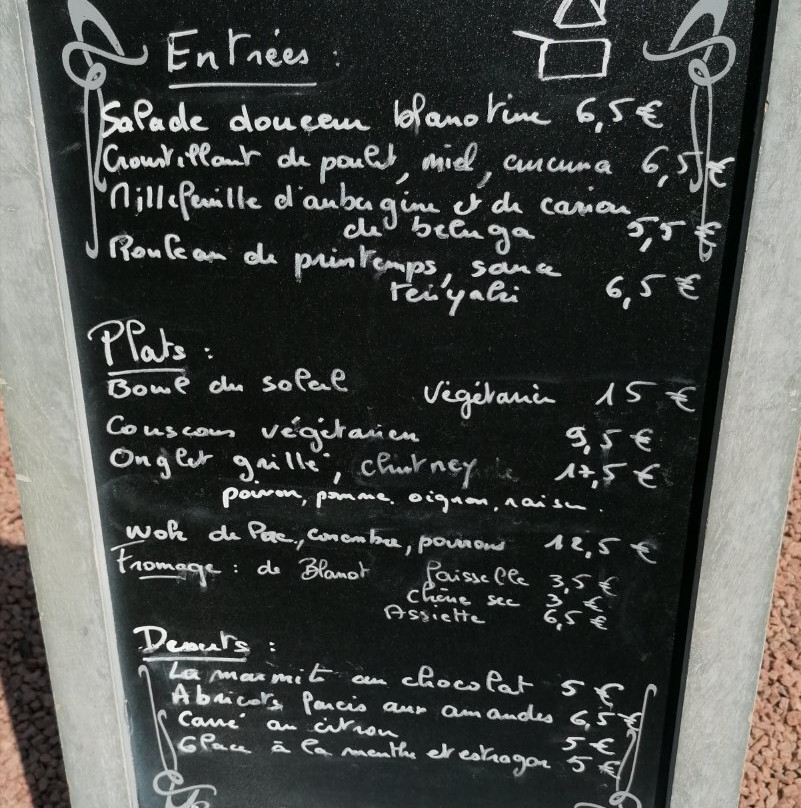 Entrées :
Salade douceur blanotine 6,5 €
Croustillant de poulet, miel, curcuma 6,5 €
Millefeuille d'aubergine et de caviar
de beluga 5,5 €
Rouleau de printemps, sauce
teriyaki 6,5 €
Plats :
Bowl du soleil Végétarien 15 €
Couscous végétarien 9,5 €
Onglet grillé, chutney 17,5 €
poivron, pomme, oignon, raisin.
Wok de Porc, concombre, poivrons 12,5 €
Fromage : de Blanot Faisselle 3,5 €
chèvre sec 3,- €
Assiette 6,5 €
Desserts :
La marmite au chocolat 5 €
Abricots farcis aux amandes 6,5 €
Carré au citron 5 €
Glace à la menthe et estragon 5 €